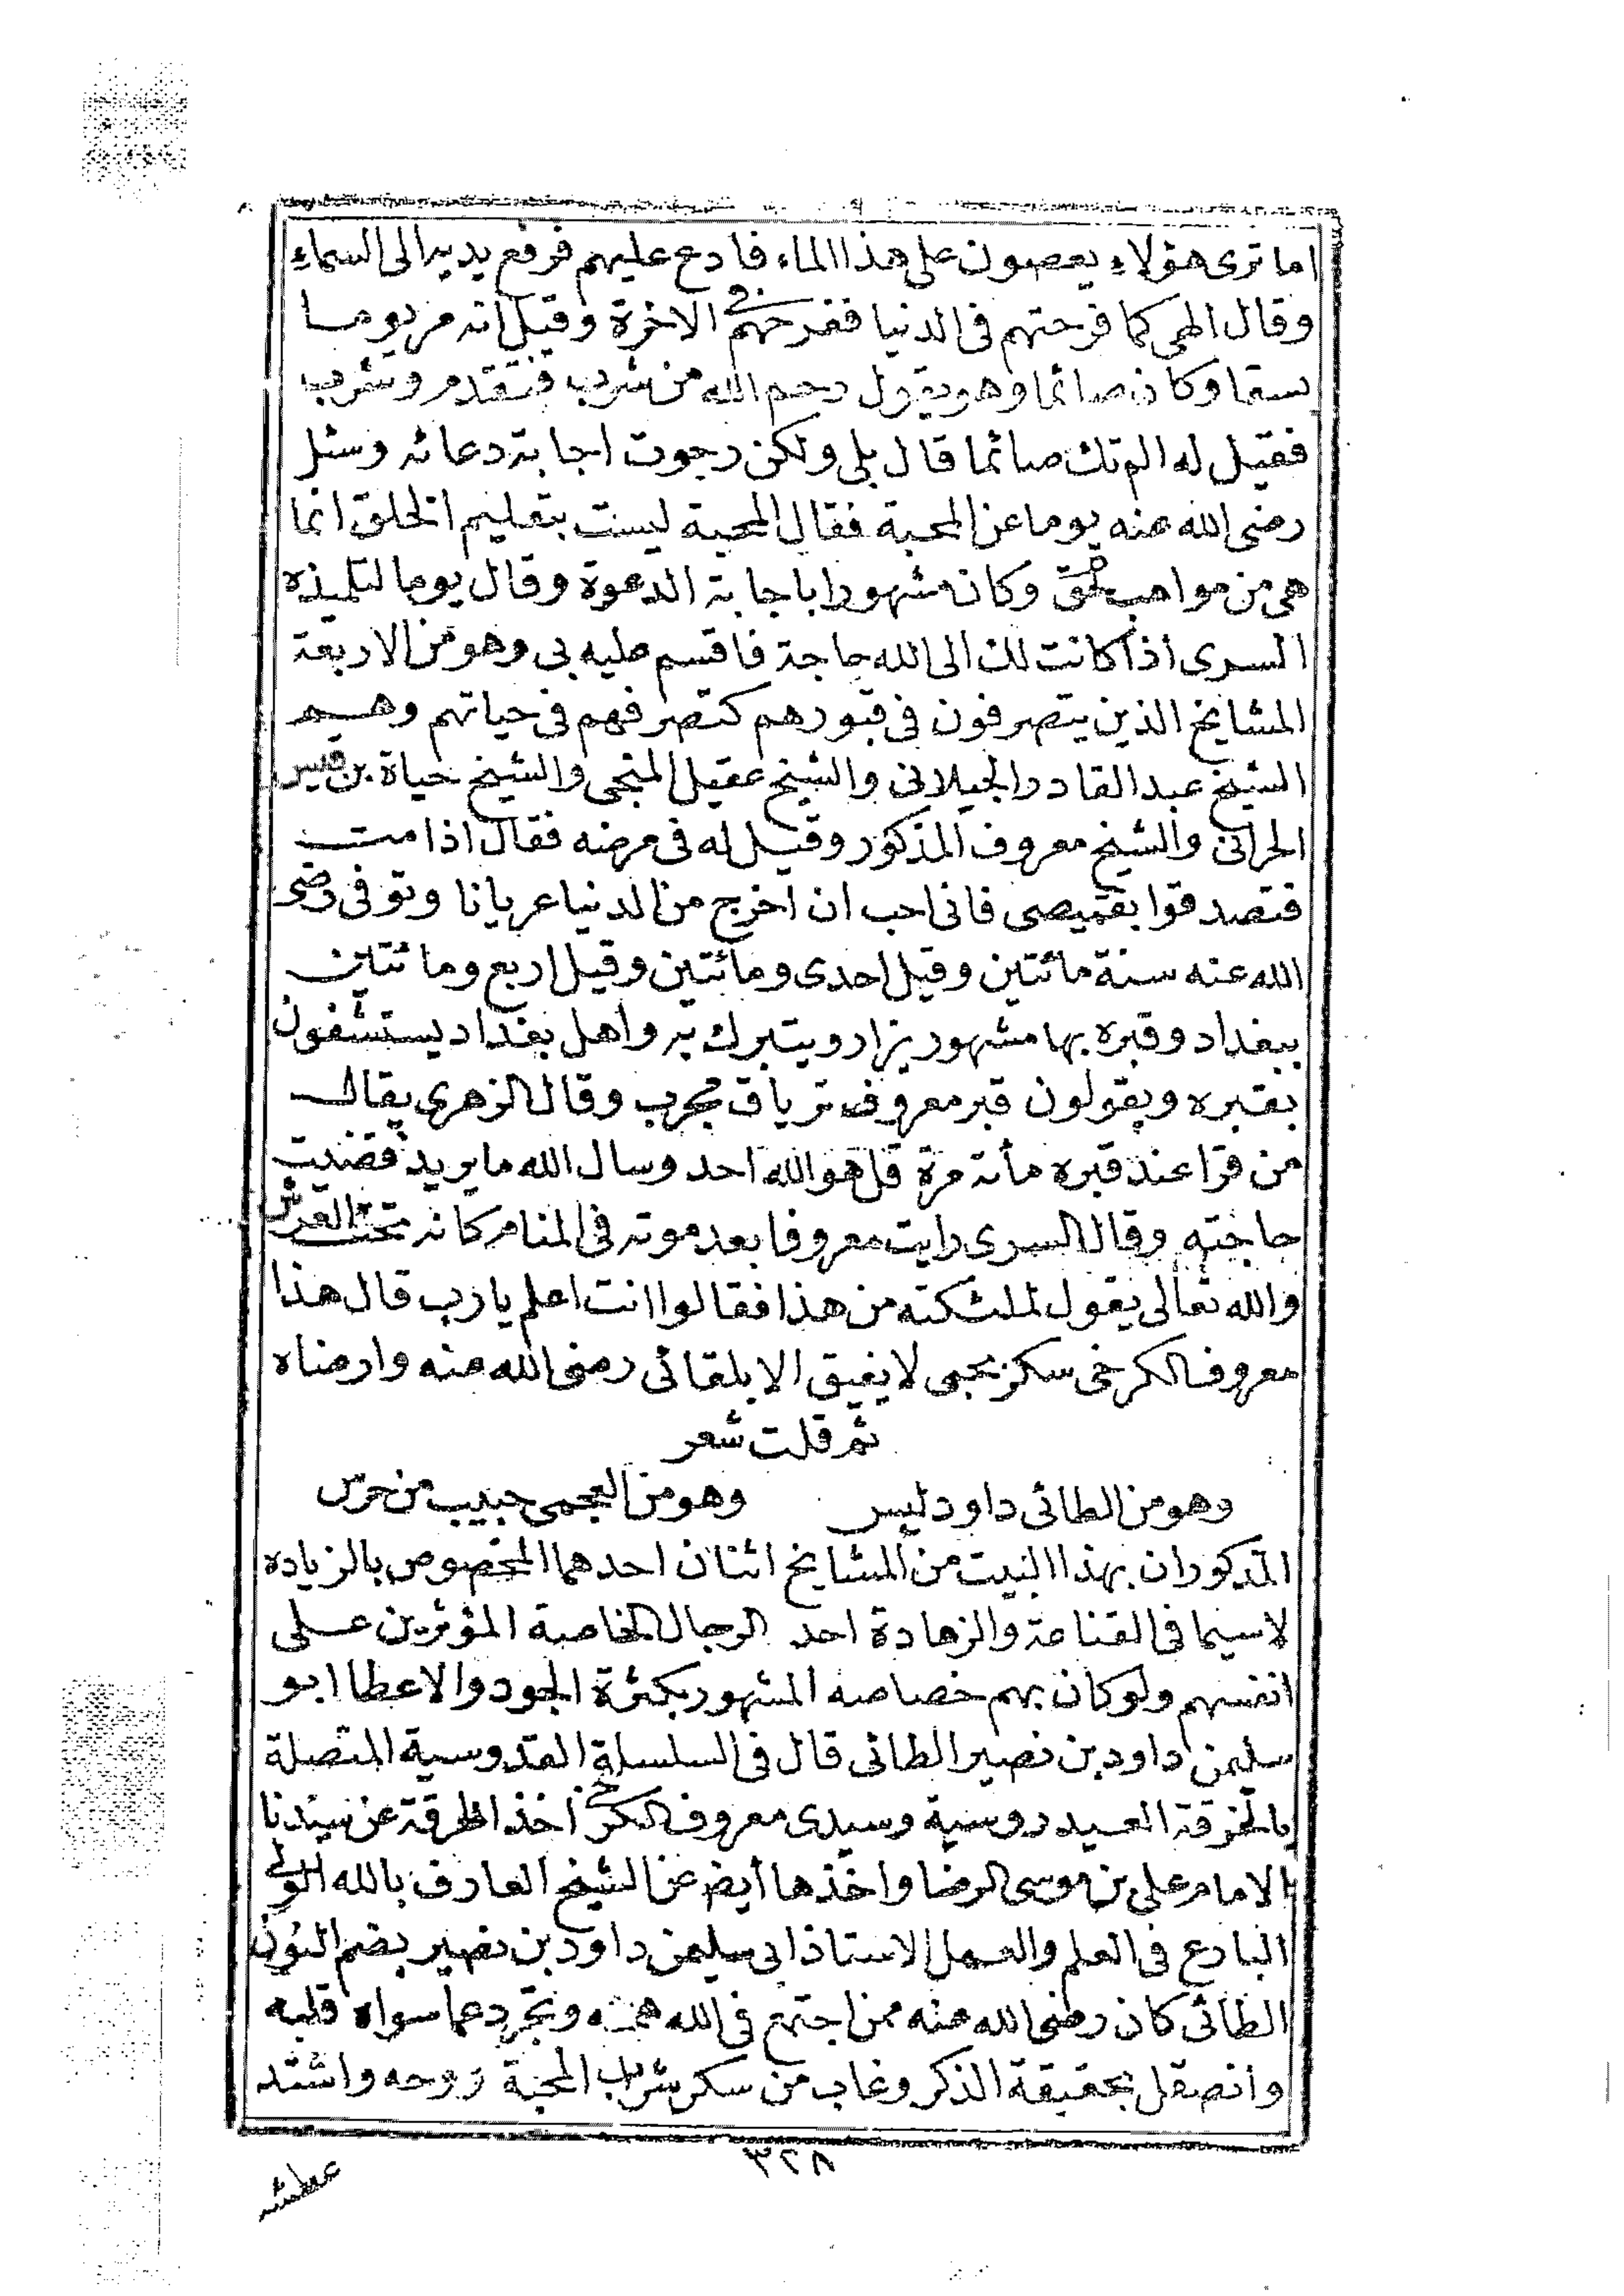 اما ترى هؤلاء يعصون على هذا الماء فادع عليهم فرفع يديه الى السماء
وقال الهى كما فرحتهم فى الدنيا ففرحهم فى الاخرة وقيل انه مر يوما
بسقا وكان صائما وهو يقول رحم الله من شرب فتقدم وشرب
فقيل له الم تك صائما قال بلى ولكن رجوت اجابة دعائه وسئل
رضى الله عنه يوما عن المحبة فقال المحبة ليست بتعليم الخلق انما
هى من مواهب الحق وكان مشهورا باجابة الدعوة وقال يوما لتلميذه
السرى اذا كانت لك الى الله حاجة فاقسم عليه بى وهو من الاربعة
المشايخ الذين يتصرفون فى قبورهم كتصرفهم فى حياتهم وهم
الشيخ عبد القادر الجيلانى والشيخ عقيل المنجى والشيخ حياة بن قيس
الحرانى والشيخ معروف المذكور وقيل له فى مرضه فقال اذا مت
فتصدقوا بقميصى فانى احب ان اخرج من الدنيا عريانا وتوفى رضى
الله عنه سنة مائتين وقيل احدى ومائتين وقيل اربع ومائتين
ببغداد وقبره بها مشهور يزار ويتبرك به واهل بغداد يستشفون
بقبره ويقولون قبر معروف ترياق مجرب وقال الزهرى يقال
من قرا عند قبره مأته مرة قل هو الله احد وسال الله ما يريد قضيت
حاجته وقال السرى رايت معروفا بعد موته فى المنام كانه تحت العرش
والله تعالى يقول لملئكته من هذا فقالوا انت اعلم يا رب قال هذا
معروف الكرخى سكر بحبى لا يفيق الا بلقائى رضى الله عنه وارضاه
ثم قلت شعر
وهو من الطائى داود ليس وهو من العجمى حبيب من حرس
المذكوران بهذا البيت من المشايخ اثنان احدهما المخصوص بالزياده
لاسيما فى القناعة والزهادة احد الرجال الخاصة المؤثرين على
انفسهم ولو كان بهم خصاصه المشهور بكثرة الجود والاعطا ابو
سليمن داود بن نصير الطائى قال فى السلسلة القدوسية المتصلة
بالخرقة العيدروسية وسيدى معروف الكرخى اخذ الخرقة عن سيدنا
الامام على بن موسى الرضا واخذها أيضا عن الشيخ العارف بالله الولى
البارع فى العلم والعمل الاستاذ ابى سليمن داود بن نصير بضم النون
الطائى كان رضى الله عنه ممن اجتمع فى الله همه وتجرد عما سواه قلبه
وانصقل بحقيقة الذكر وغاب من سكر شراب المحبة روحه واشتد
٣٢٨
عطشه